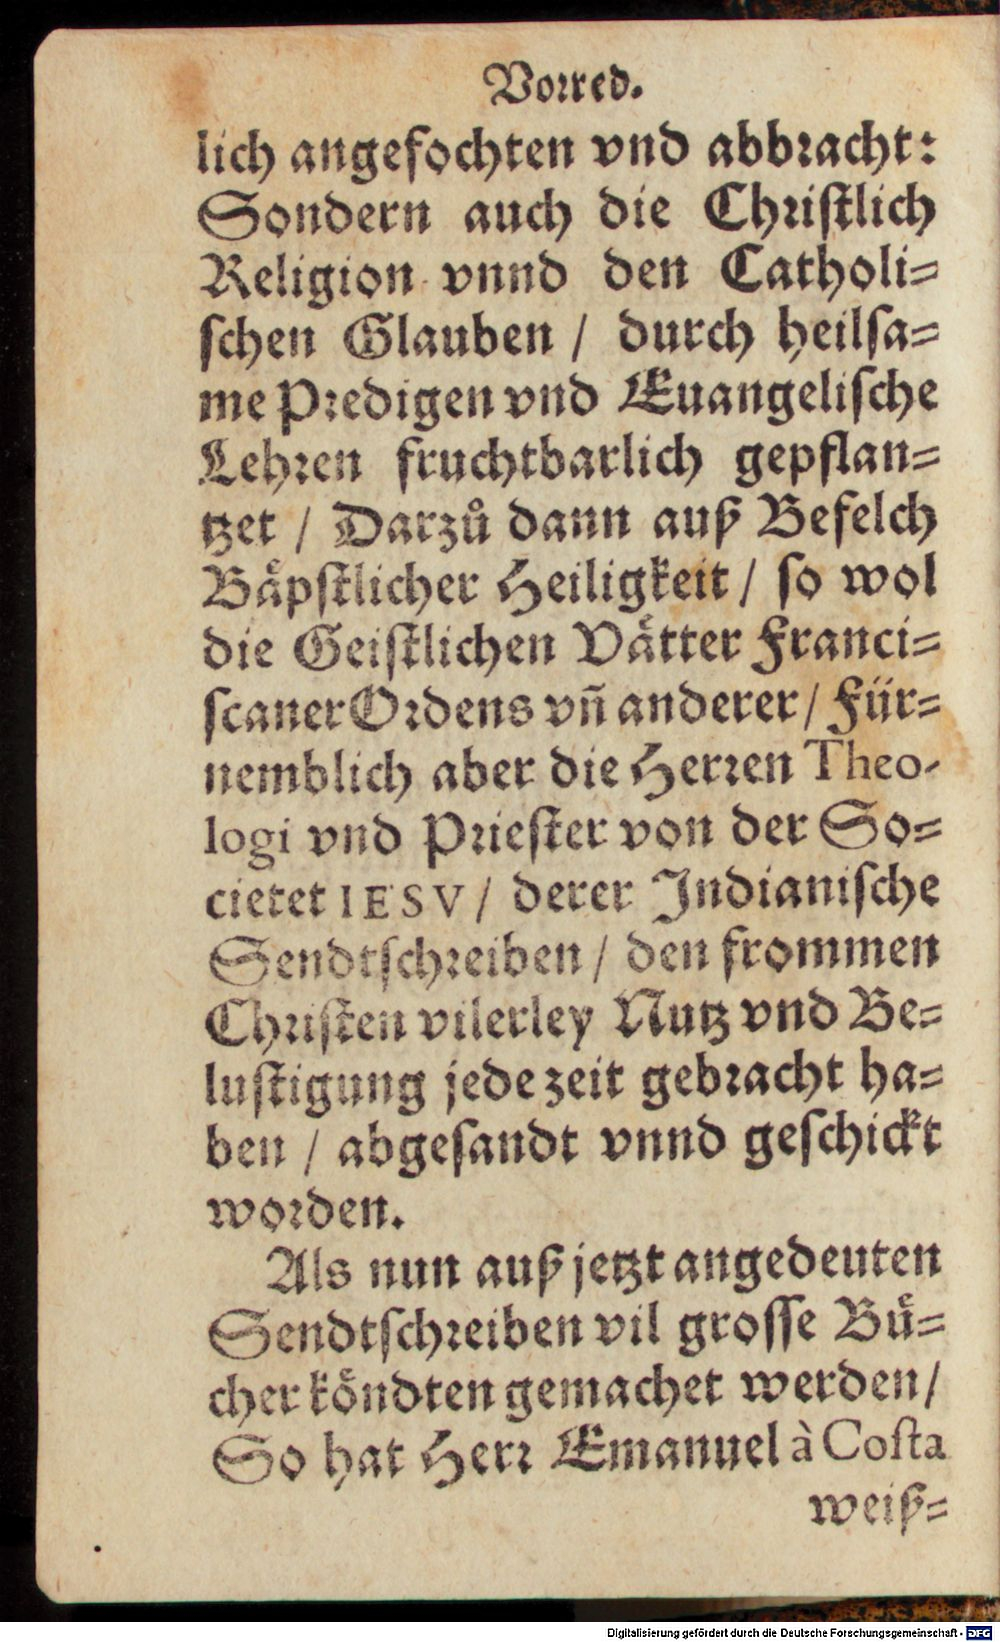 Vorred.
lich angefochten vnd abbracht:
Sondern auch die Chriſtlich
Religion vnnd den Catholi=
ſchen Glauben / durch heilſa=
me Predigen vnd Euangeliſche
Lehren fruchtbarlich gepflan=
tzet / Darzů dann auß Befelch
Bäpſtlicher Heiligkeit / ſo wol
die Geiſtlichen Vätter Franci=
ſcaner Ordens vñ anderer / Für=
nemblich aber die Herren Theo-
logi vnd Prieſter von der So=
cietet IESV / derer Indianiſche
Sendtſchreiben / den frommen
Chriſten vilerley Nutz vnd Be=
luſtigung jede zeit gebracht ha=
ben / abgeſandt vnnd geſchickt
worden.
Als nun auß jetzt angedeuten
Sendtſchreiben vil groſſe Bü=
cher köndten gemachet werden /
So hat Herr Emanuel à Coſta
weiß=
Digitalisierung gefördert durch die Deutsche Forschungsgemeinschaft - DFG